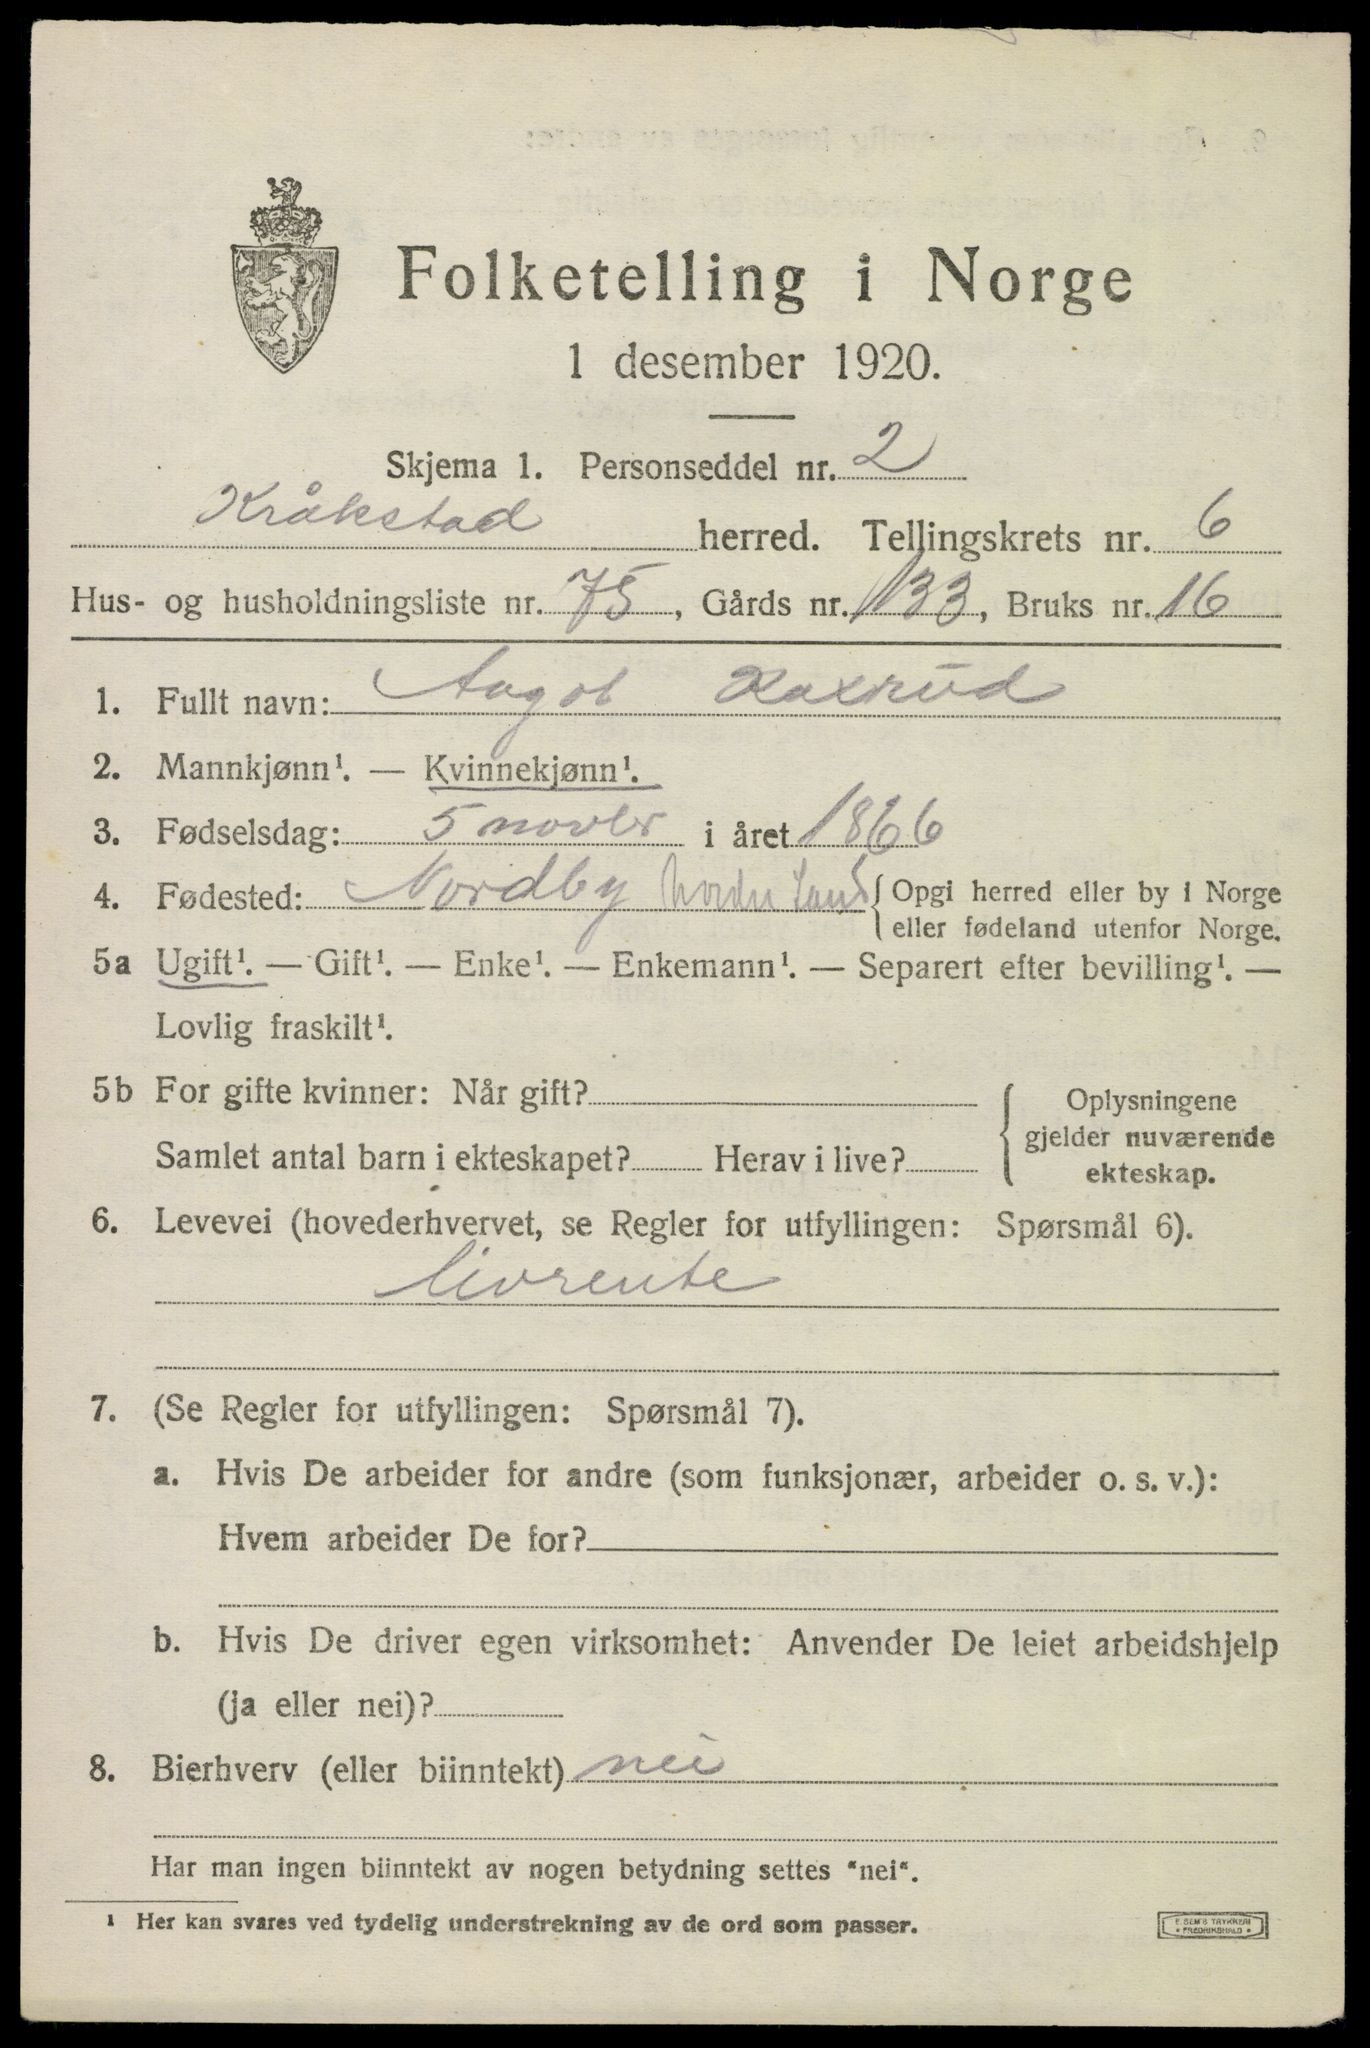 Folketelling i Norge
1 desember 1920.
Skjema 1. Personseddel nr. 2
Kråkstad herred. Tellingskrets nr. 6
Hus- og husholdningsliste nr. 75, Gårds nr. 133, Bruks nr. 16
1. Fullt navn: Aagot
2. Mannkjønn¹. — Kvinnekjønn¹.
3. Fødselsdag: 5 novbr i året 1866
4. Fødested: Nordby { Opgi herred eller by i Norge
eller fødeland utenfor Norge.
5a Ugift¹. — Gift¹. — Enke¹. — Enkemann¹. — Separert efter bevilling¹. —
Lovlig fraskilt¹.
5b For gifte kvinner: Når gift?
Samlet antal barn i ekteskapet? Herav i live?
{ Oplysningene
gjelder nuværende
ekteskap.
6. Levevei (hovederhvervet, se Regler for utfyllingen: Spørsmål 6).
livrente
7. (Se Regler for utfyllingen: Spørsmål 7).
a. Hvis De arbeider for andre (som funksjonær, arbeider o. s. v.):
Hvem arbeider De for?
b. Hvis De driver egen virksomhet: Anvender De leiet arbeidshjelp
(ja eller nei)?
8. Bierhverv (eller biinntekt) nei
Har man ingen biinntekt av nogen betydning settes "nei".
¹ Her kan svares ved tydelig understrekning av de ord som passer.
E. SEM'S TRYKKERI
* FREDRIKSHALD *